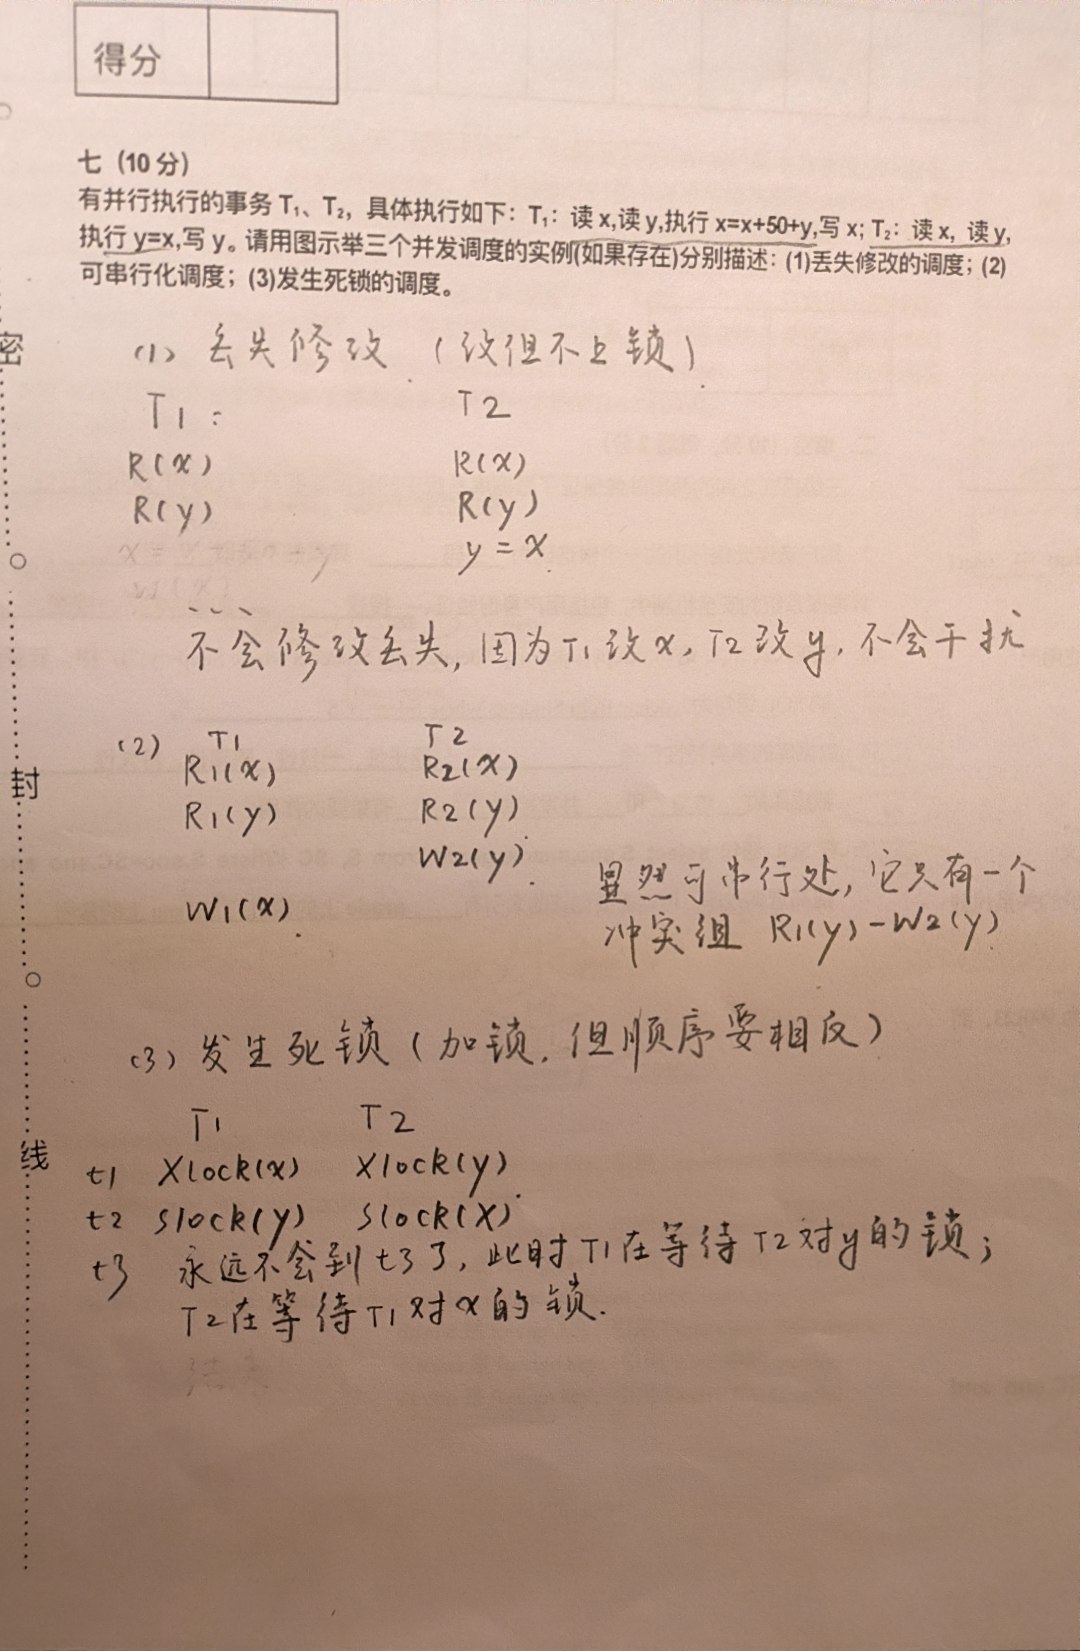 得分
七（10 分）
有并行执行的事务 T₁、T₂，具体执行如下：T₁：读 x,读 y,执行 x=x+50+y,写 x; T₂：读 x, 读 y,
执行 y=x,写 y。请用图示举三个并发调度的实例(如果存在)分别描述：(1)丢失修改的调度；(2)
可串行化调度；(3)发生死锁的调度。
密
(1) 丢失修改 (改但不上锁)
T1: T2
R(x) R(x)
R(y) R(y)
y = x
不会修改丢失, 因为T1改x, T2改y, 不会干扰
(2) T1 T2
封
R1(x) R2(x)
R1(y) R2(y)
W2(y)
显然可串行处, 它只有一个
W1(x)
冲突组 R1(y)-W2(y)
(3) 发生死锁 (加锁, 但顺序要相反)
T1 T2
线
t1 Xlock(x) Xlock(y)
t2 Slock(y) Slock(x)
t3 永远不会到t3了, 此时T1在等待T2对y的锁;
T2在等待T1对x的锁.